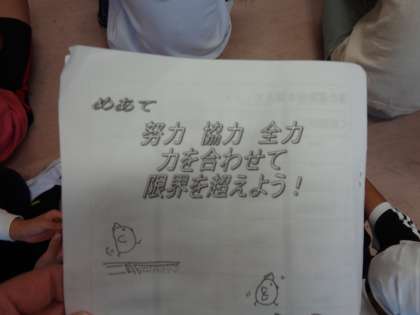 めあて
努力 協力 全力
力を合わせて
限界を超えよう！